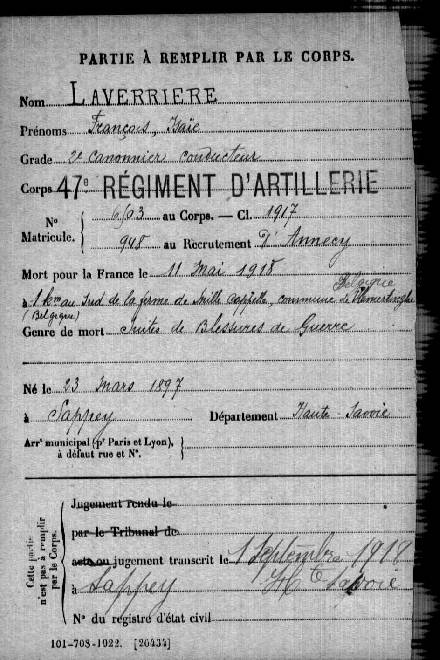 PARTIE À REMPLIR PAR LE CORPS.
Nom LAVERRIERE
Prénoms François, Isaïe
Grade 2e canonnier conducteur
Corps 47e RÉGIMENT D'ARTILLERIE
No Matricule. { au Corps. — Cl. 1917
948 au Recrutement d'Annecy
Mort pour la France le 11 Mai 1918
Belgique
à 1 km au Sud de la ferme de commune de
(Belgique)
Genre de mort Suites de Blessures de Guerre
Né le 23 Mars 1897
à Sappey Département Haute-Savoie
Arrt municipal (pr Paris et Lyon), à défaut rue et No. }
Cette partie n'est pas à remplir par le Corps.
Jugement rendu le
par le Tribunal de
acte ou jugement transcrit le 1 Septembre 1918
à Sappey Hte Savoie
No du registre d'état civil
101-708-1922. [26434]